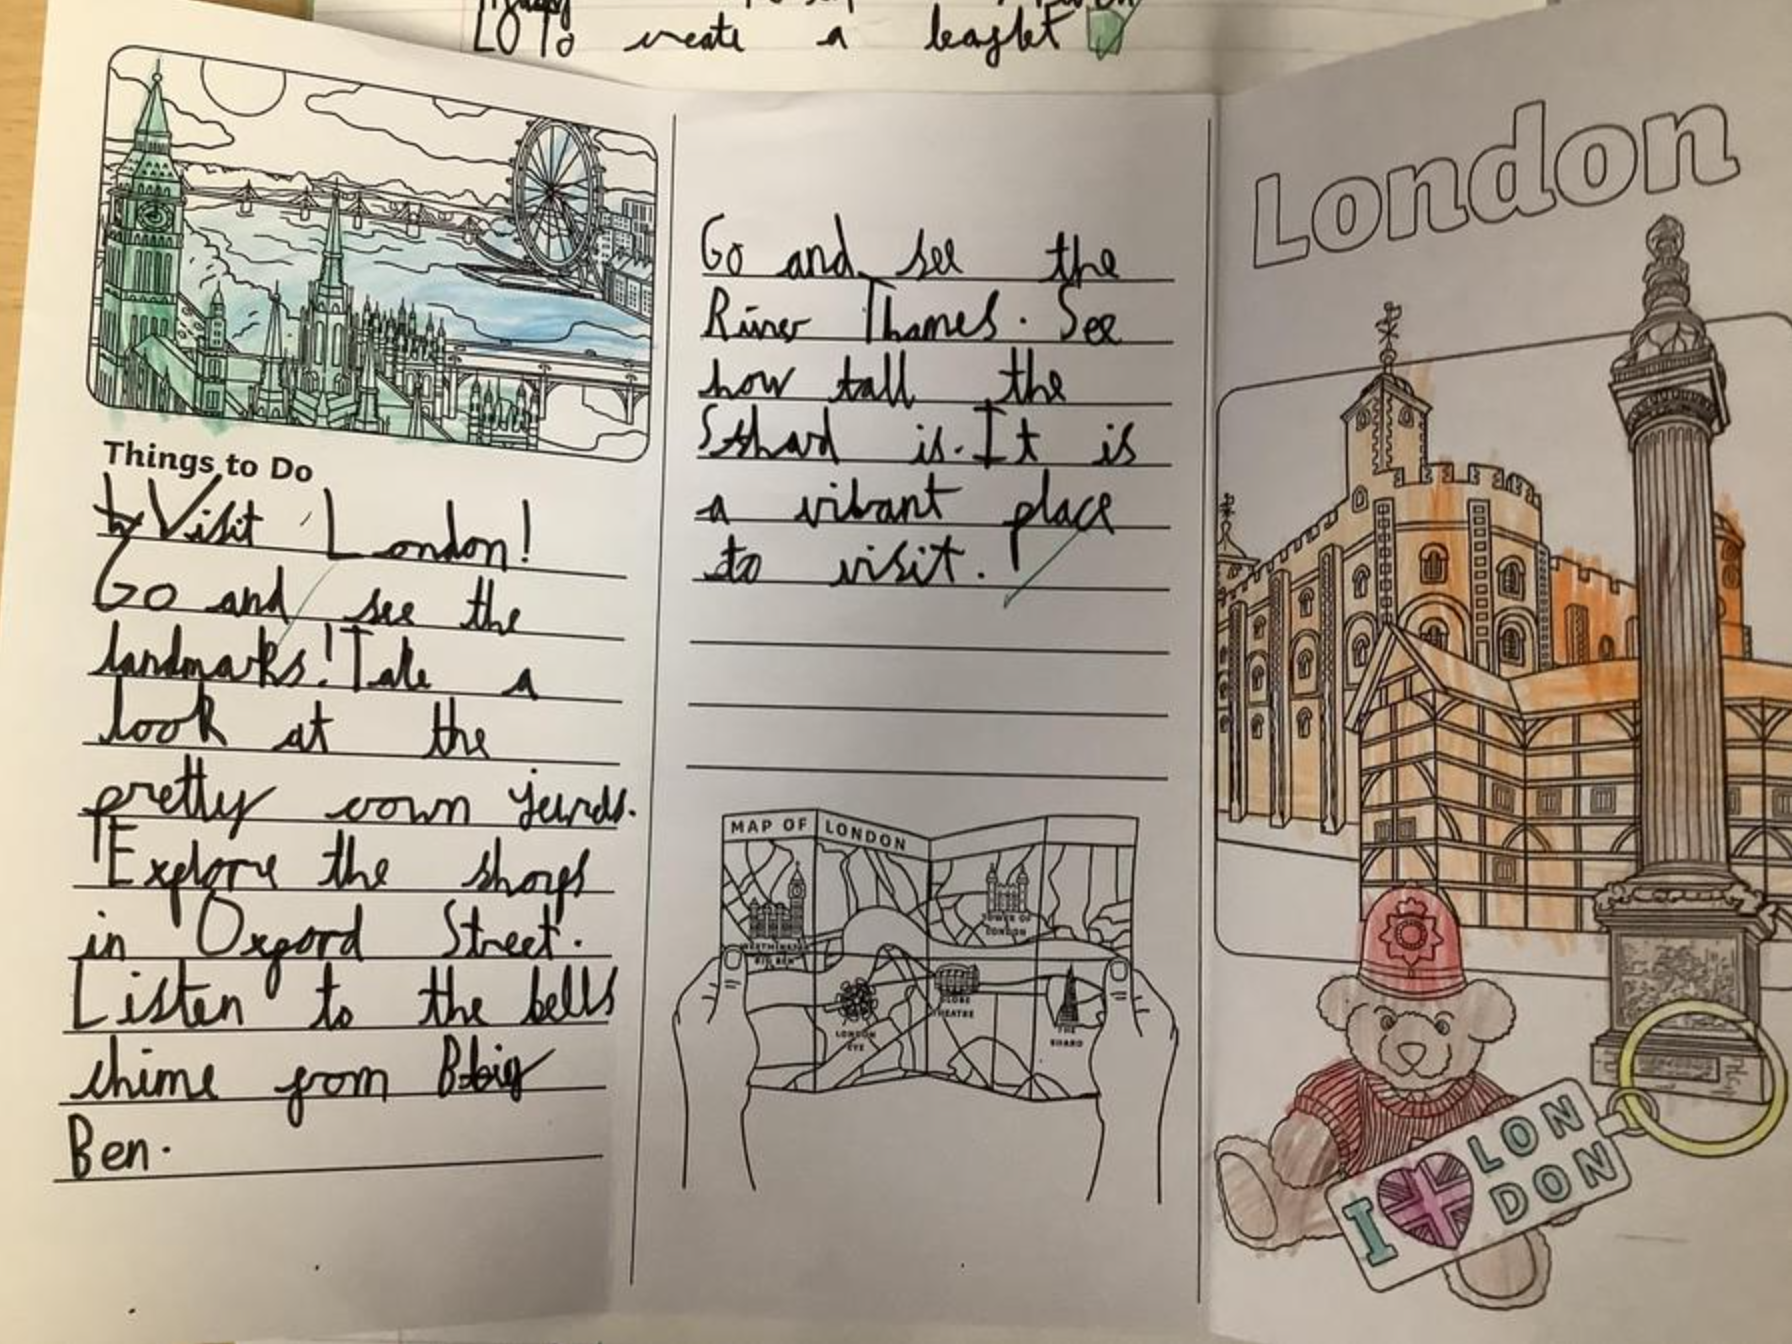 LO To create a leaflet
Things to Do
Visit London!
Go and see the
landmarks! Take a
look at the
pretty crown
Explore the shops
in Oxford Street.
Listen to the bells
chime from Big
Ben.
Go and see the
River Thames. See
how tall the
Sshard is. It is
a vibrant place
to visit.
MAP OF LONDON
WESTMINSTER
BIG BEN
TOWER OF
LONDON
LONDON
EYE
GLOBE
THEATRE
THE
SHARD
London
I LON
DON